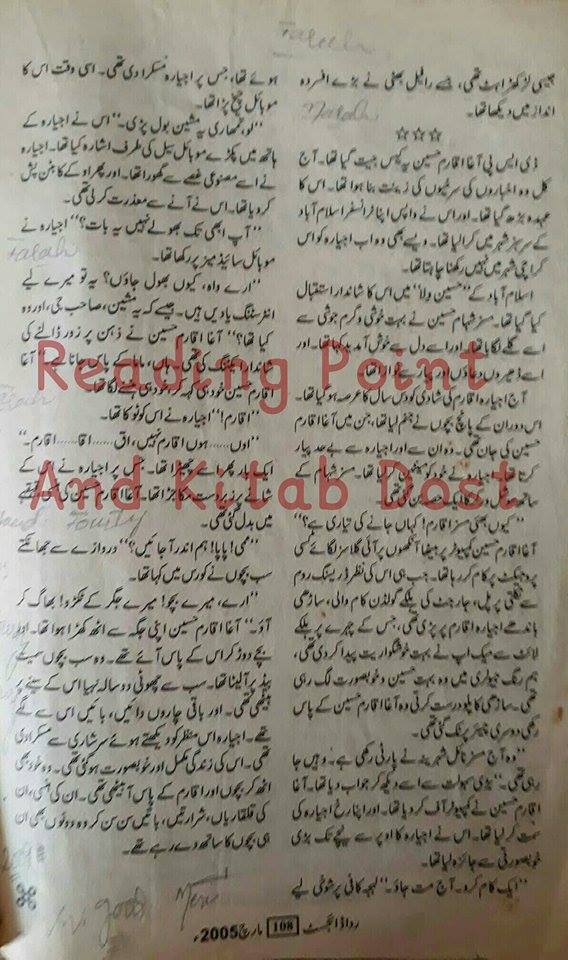 جیسی لڑکھڑاہٹ تھی، جسے رافیل بھٹی نے بڑے افسردہ
انداز میں دیکھا تھا۔
☆☆☆
ڈی ایس پی آغا اقارم حسین یہ کیس جیت گیا تھا۔ آج
کل وہ اخباروں کی سرخیوں کی زینت بنا ہوا تھا۔ اس کا
عہدہ بڑھ گیا تھا۔ اور اس نے واپس اپنا ٹرانسفر اسلام آباد
کے سرسبز شہر میں کرالیا تھا۔ ویسے بھی وہ اب اجیارہ کو اس
کراچی شہر میں نہیں رکھنا چاہتا تھا۔
اسلام آباد کے ”حسین ولا“ میں اس کا شاندار استقبال
کیا گیا تھا۔ مسز شہام حسین نے بہت خوشی و گرم جوشی سے
اسے گلے لگایا تھا۔ اور اسے دل سے خوش آمدید کہا تھا۔ اور
اسے ڈھیروں دعاؤں اور پیار سے نوازا تھا۔
آج اجیارہ اقارم کی شادی کو دس سال کا عرصہ ہو گیا تھا۔
اس دوران کے پانچ بچوں نے جنم لیا تھا، جن میں آغا اقارم
حسین کی جان تھی۔ وہ ان سے اور اجیارہ سے بے حد پیار
کرتا تھا۔ اجیارہ نے خود کو
ساتھ
”کیوں بھئی مسز اقارم! کہاں جانے کی تیاری ہے؟“
آغا اقارم حسین کمپیوٹر پر بیٹھا آنکھوں پر آئی گلاسز لگائے کسی
پروجیکٹ پر کام کررہا تھا۔ جب ہی اس کی نظر ڈریسنگ روم
سے نکلتی پرپل، جارجٹ کی ہلکے گولڈن کام والی، ساڑھی
باندھے اجیارہ اقارم پر پڑی تھی، جس کے چہرے پر ہلکے
لائٹ سے میک اپ نے بہت خوشگواریت پیدا کردی تھی،
ہم رنگ جیولری میں وہ بہت حسین و خوبصورت لگ رہی
تھی۔ ساڑھی کا پلو درست کرتی وہ آغا اقارم حسین کے پاس
رکھی دوسری چیئر پر ٹک گئی تھی۔
”وہ آج مسز نائل شہرینہ نے پارٹی رکھی ہے۔ وہیں جا
رہی تھی۔“ بڑی سہولت سے اسے دیکھ کر جواب دیا تھا۔ آغا
اقارم حسین نے کمپیوٹر آف کردیا تھا۔ اور اپنا رخ اجیارہ کی
سمت کر لیا تھا۔ اس نے اجیارہ کا اوپر سے نیچے تک بڑی
خوبصورتی سے جائزہ لیا تھا۔
”ایک کام کرو۔ آج مت جاؤ۔“ لہجہ کافی پرشوخی لیے
ہوئے تھا، جس پر اجیارہ مسکرا دی تھی۔ اسی وقت اس کا
موبائل چیخ پڑا تھا۔
”لو، تمھاری یہ مشین بول پڑی۔“ اس نے اجیارہ کے
ہاتھ میں پکڑے موبائل سیل کی طرف اشارہ کیا تھا۔ اجیارہ
نے اسے مصنوعی غصے سے گھورا تھا۔ اور پھر اوکے کا بٹن پش
کردیا تھا۔ اس نے آنے سے معذرت کرلی تھی۔
”آپ ابھی تک بھولے نہیں یہ بات؟“ اجیارہ نے
موبائل سائیڈ میز پر رکھا تھا۔
”ارے واہ، کیوں بھول جاؤں؟ یہ تو میرے لیے
انٹرسٹنگ یادیں ہیں۔ جیسے کہ یہ مشین، صاحب جی، اور وہ
کیا تھا؟“ آغا اقارم حسین نے ذہن پر زور ڈالنے کی
شاندار ایکٹنگ کی تھی۔
”اقارم!“ اجیارہ نے اس کو ٹوکا تھا۔
”اوں..... ہوں اقارم نہیں، اق..... اقا..... اقارم۔“
ایک بار پھر اسے چھیڑا تھا۔ جس پر اجیارہ نے اس کے
شانے پر زبردست مکا جڑا تھا۔ آغا اقارم حسین کی
میں بدل گئی تھی۔
”ممی! پاپا! ہم اندر آجائیں؟“ دروازے سے جھانکتے
سب بچوں نے کورس میں کہا تھا۔
”ارے، میرے بچو! میرے جگر کے ٹکڑو! بھاگ کر
آؤ۔“ آغا اقارم حسین اپنی جگہ سے اٹھ کھڑا ہوا تھا۔ اور
بچے دوڑ کر اس کے پاس آئے تھے۔ وہ سب بچوں سمیت
بیڈ پر آ لیٹا تھا۔ سب سے چھوٹی دو سالہ نیہا اس کے سینے پر
بیٹھی تھی۔ اور باقی چاروں دائیں، بائیں اس سے لگے
تھے۔ اجیارہ اس منظر کو دیکھتے ہوئے سرشاری سے مسکرا دی
تھی۔ اس کی زندگی مکمل اور خوبصورت ہوگئی تھی۔ وہ خود بھی
اٹھ کر بچوں اور اقارم کے پاس آ بیٹھی تھی۔ ان کی ہنسی، ان
کی قلقاریاں، شرارتیں، باتیں سن سن کر وہ دونوں بھی ان
ہی بچوں کا ساتھ دے رہے تھے۔
Reading Point
And Kitab Dost
Falah
ردا ڈائجسٹ 108 مارچ 2005ء